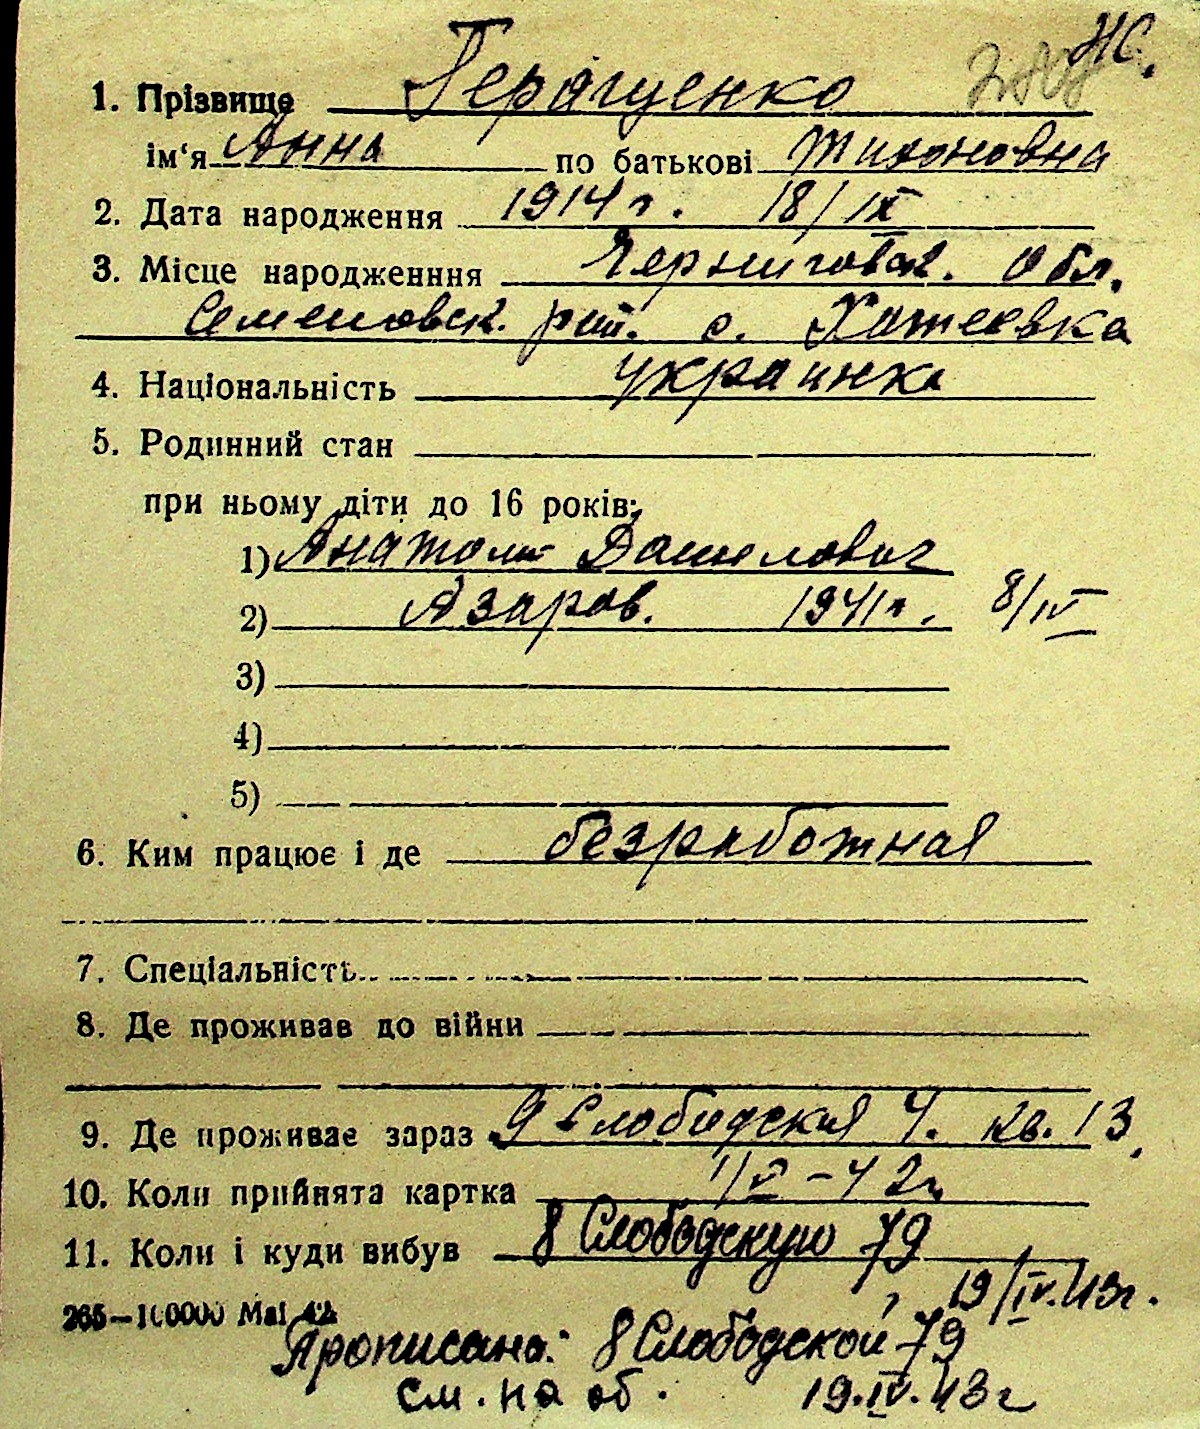 НС.
1. Прізвище Геращенко
ім'я Анна по батькові Тихоновна
2. Дата народження 1914 г. 18/IX
3. Місце народженння Черниговск. Обл.
Семеновск. рай. с. Хотеевка
4. Національність украинка
5. Родинний стан
при ньому діти до 16 років:
1) Анатолий Данилович
2) Азаров. 1941 г. 8/IV
3)
4)
5)
6. Ким працює і де безработная
7. Спеціальність
8. Де проживав до війни
9. Де проживає зараз 9 Слободская 4. кв. 13.
10. Коли прийнята картка 1/V-42 г.
11. Коли і куди вибув 8 Слободскую 79
19/IV.43г.
265—100000 Mai 42
Прописана: 8 Слободской 79
см. на об. 19.IV.43 г